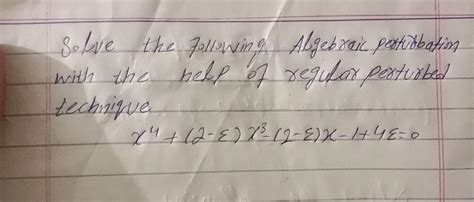 Solve the following Algebraic perturbation
with the help of regular perturbed
technique
x⁴ + (2-ε)x³-(2-ε)x-1+4ε=0